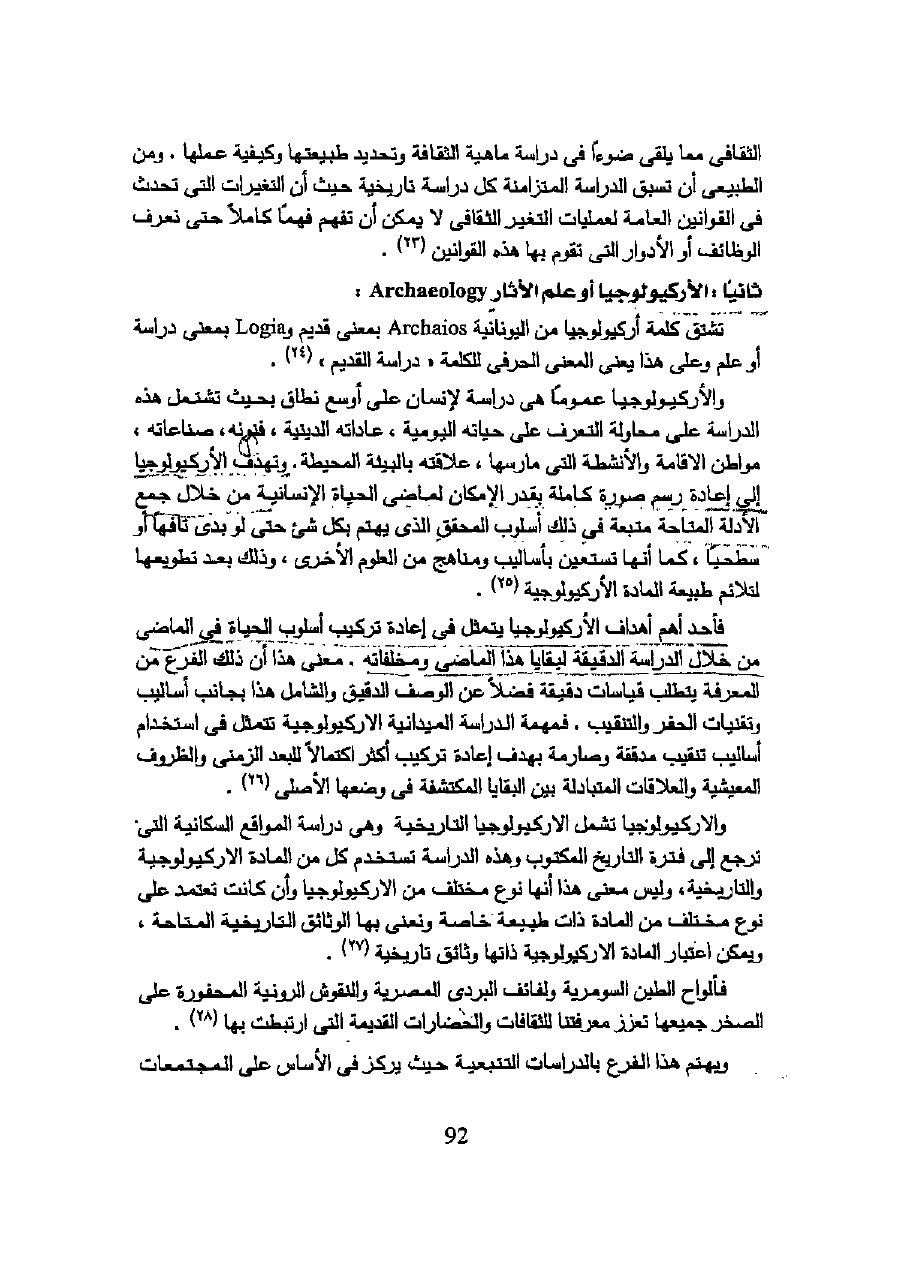 الثقافى مما يلقى ضوءاً فى دراسة ماهية الثقافة وتحديد طبيعتها وكيفية عملها . ومن
الطبيعى أن تسبق الدراسة المتزامنة كل دراسة تاريخية حيث أن التغيرات التى تحدث
فى القوانين العامة لعمليات التغير الثقافى لا يمكن أن تفهم فهمًا كاملاً حتى نعرف
الوظائف أو الأدوار التى تقوم بها هذه القوانين (٢٣) .
ثانيًا : الأركيولوجيا أو علم الأثار Archaeology :
تشتق كلمة أركيولوجيا من اليونانية Archaios بمعنى قديم وLogia بمعنى دراسة
أو علم وعلى هذا يعنى المعنى الحرفى للكلمة « دراسة القديم » (٢٤) .
والأركيولوجيا عمومًا هى دراسة لإنسان على أوسع نطاق بحيث تشتمل هذه
الدراسة على محاولة التعرف على حياته اليومية ، عاداته الدينية ، فنونه ، صناعاته ،
مواطن الاقامة والأنشطة التى مارسها ، علاقته بالبيئة المحيطة . وتهدف الأركيولوجيا
إلى إعادة رسم صورة كاملة بقدر الإمكان لماضى الحياة الإنسانية من خلال جمع
الأدلة المتاحة متبعة فى ذلك أسلوب المحقق الذى يهتم بكل شئ حتى لو بدى تافهًا أو
سطحيًا ، كما أنها تستعين بأساليب ومناهج من العلوم الأخرى ، وذلك بعد تطويعها
لتلائم طبيعة المادة الأركيولوجية (٢٥) .
فأحد أهم أهداف الأركيولوجيا يتمثل فى إعادة تركيب أسلوب الحياة فى الماضى
من خلال الدراسة الدقيقة لبقايا هذا الماضى ومخلفاته . معنى هذا أن ذلك الفرع من
المعرفة يتطلب قياسات دقيقة فضلاً عن الوصف الدقيق والشامل هذا بجانب أساليب
وتقنيات الحفر والتنقيب . فمهمة الدراسة الميدانية الاركيولوجية تتمثل فى استخدام
أساليب تنقيب مدققة وصارمة بهدف إعادة تركيب أكثر اكتمالاً للبعد الزمنى والظروف
المعيشية والعلاقات المتبادلة بين البقايا المكتشفة فى وضعها الأصلى (٢٦) .
والاركيولوجيا تشمل الاركيولوجيا التاريخية وهى دراسة المواقع السكانية التى
ترجع إلى فترة التاريخ المكتوب وهذه الدراسة تستخدم كل من المادة الاركيولوجية
والتاريخية ، وليس معنى هذا أنها نوع مختلف من الاركيولوجيا وأن كانت تعتمد على
نوع مختلف من المادة ذات طبيعة خاصة ونعنى بها الوثائق التاريخية المتاحة ،
ويمكن اعتبار المادة الاركيولوجية ذاتها وثائق تاريخية (٢٧) .
فألواح الطين السومرية ولفائف البردى المصرية والنقوش الرونية المحفورة على
الصخر جميعها تعزز معرفتنا للثقافات والحضارات القديمة التى ارتبطت بها (٢٨) .
ويهتم هذا الفرع بالدراسات التتبعية حيث يركز فى الأساس على المجتمعات
92